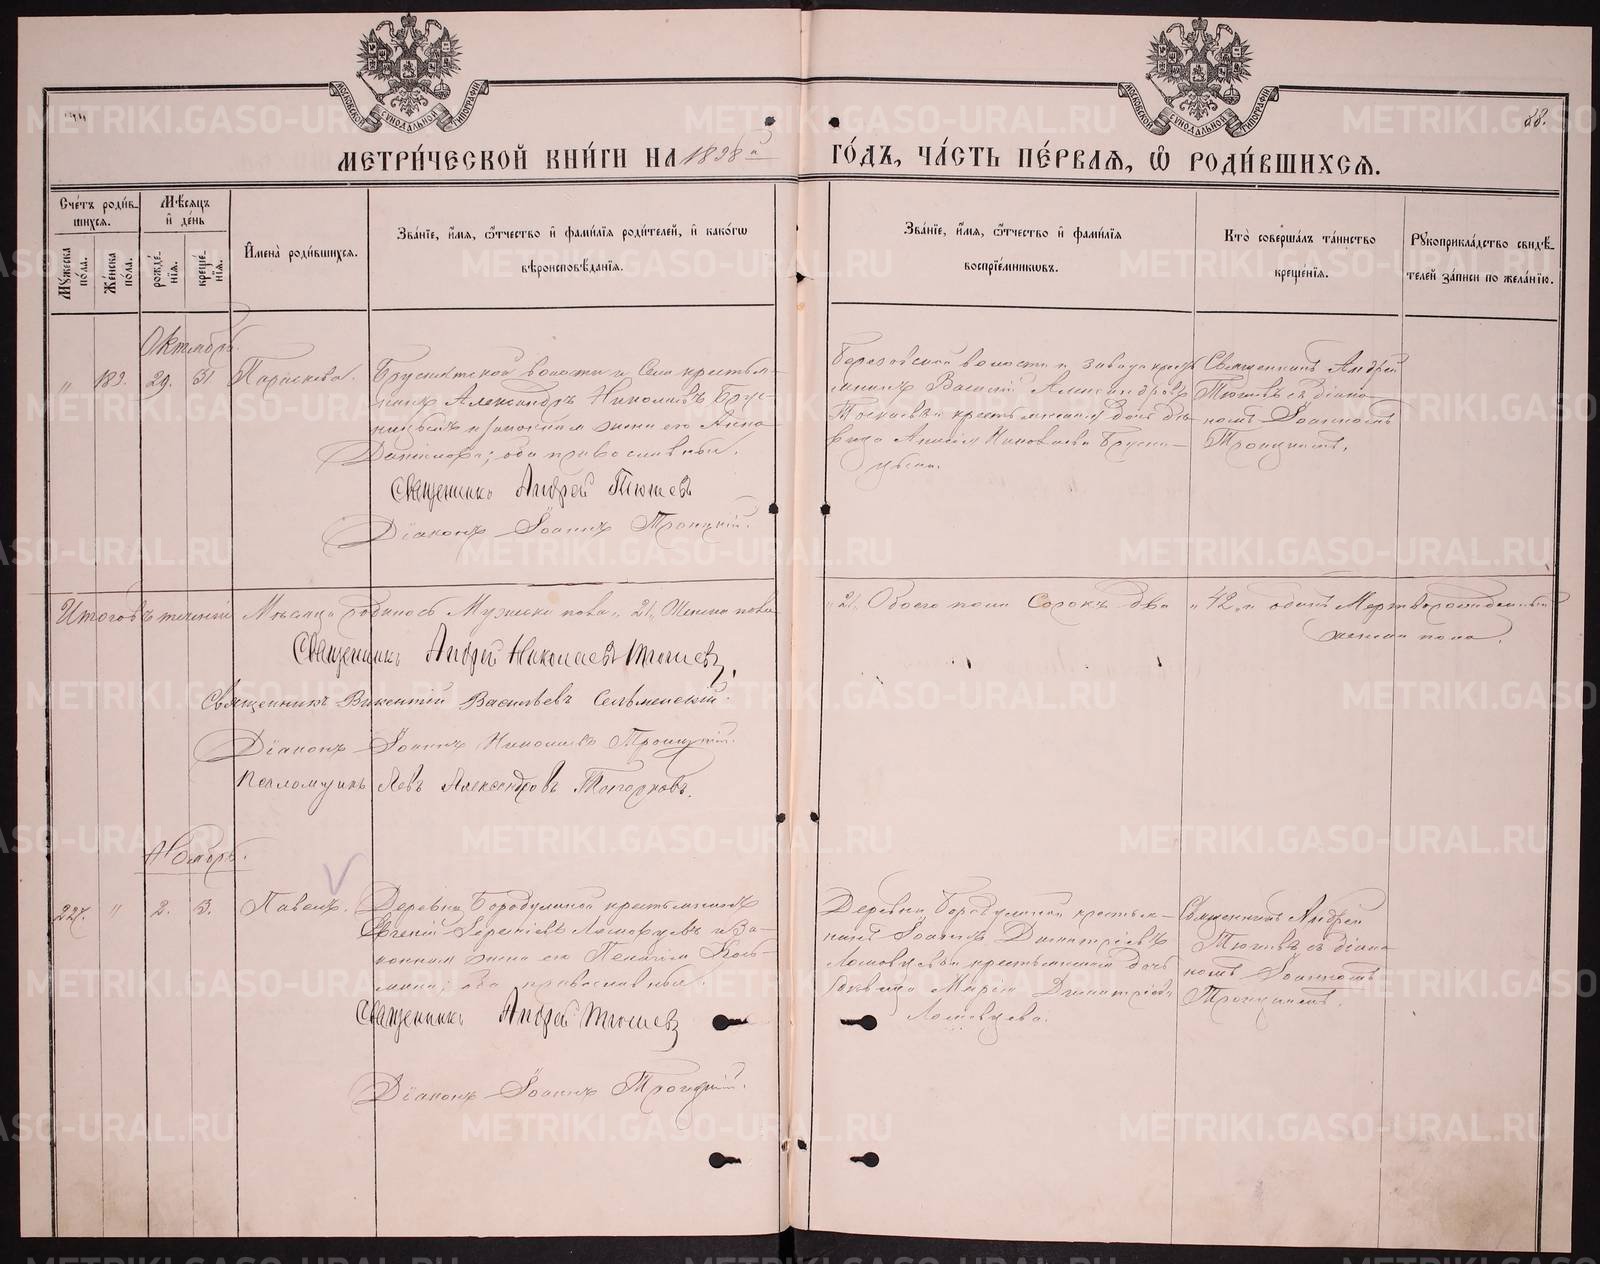 МОСКОВСКОЙ СѴНОДАЛЬНОЙ ТИПОГРАФІИ
МОСКОВСКОЙ СѴНОДАЛЬНОЙ ТИПОГРАФІИ
88.
МЕТРИ́ЧЕСКОЙ КНИ́ГИ НА 1898 й
ГО́ДЪ, ЧА́СТЬ ПЕ́РВАЯ, Ѿ РОДИ́ВШИХСЯ.
Сче́тъ роди́в-
шихся.
Мѣ́сяцъ
и҆ де́нь
Мꙋжеска
пола.
Женска
пола.
рожде́-
нїя.
креще́-
нїя.
И҆мена̀ роди́вшихся.
Зва́нїе, и҆́мя, ѻ҆́тчество и҆ фами́лїя роди́телей, и҆ како́гѡ
вѣроисповѣ́данїя.
Зва́нїе, и҆́мя, ѻ҆́тчество и҆ фами́лїя
воспрїе́мниковъ.
Кто̀ соверша́лъ та́инство
креще́нїя.
Рꙋкоприкла́дство свидѣ́-
телей за́писи по жела́нїю.
Октябрь.
" 189. 29. 31 Параскева.
волости и Села крестья-
нинъ Александръ Николаевъ Брус-
ницынъ и законная жена его Анна
Данилова; оба православные.
Священникъ Андрей Тюшевъ
Діаконъ Іоаннъ Троицкій.
Березовской волости и завода кресть
янинъ Василій Александровъ
крестьянская дочь дѣ-
вица Николаева Брусни-
цына.
Священникъ Андрей
Тюшевъ съ діако-
номъ Іоанномъ
Троицкимъ.
Итого въ теченіи Мѣсяца родилось Мужеска пола „ 21, Женска пола
„ 21, Обоего пола Сорокъ два „ 42, и одинъ Мертворожденный
женска пола.
Священникъ Андрей Николаевъ Тюшевъ.
Священникъ Викентій Васильевъ
Діаконъ Іоаннъ Николаевъ Троицкій.
Псаломщикъ Левъ Александровъ
Ноябрь.
227. " 2. 3. Павелъ.
Деревни Бородулиной крестьянинъ
Евгеній Ломовцевъ и за-
конная жена его Пелагія Козь-
мина; оба православные.
Священникъ Андрей Тюшевъ
Діаконъ Іоаннъ Троицкій.
Деревни Бородулиной крестья-
нинъ Іоаннъ Димитріевъ
Ломовцевъ и крестьянская дочь
дѣвица Марія Димитріева
Ломовцева.
Священникъ Андрей
Тюшевъ съ діако-
номъ Іоанномъ
Троицкимъ.
METRIKI.GASO-URAL.RU